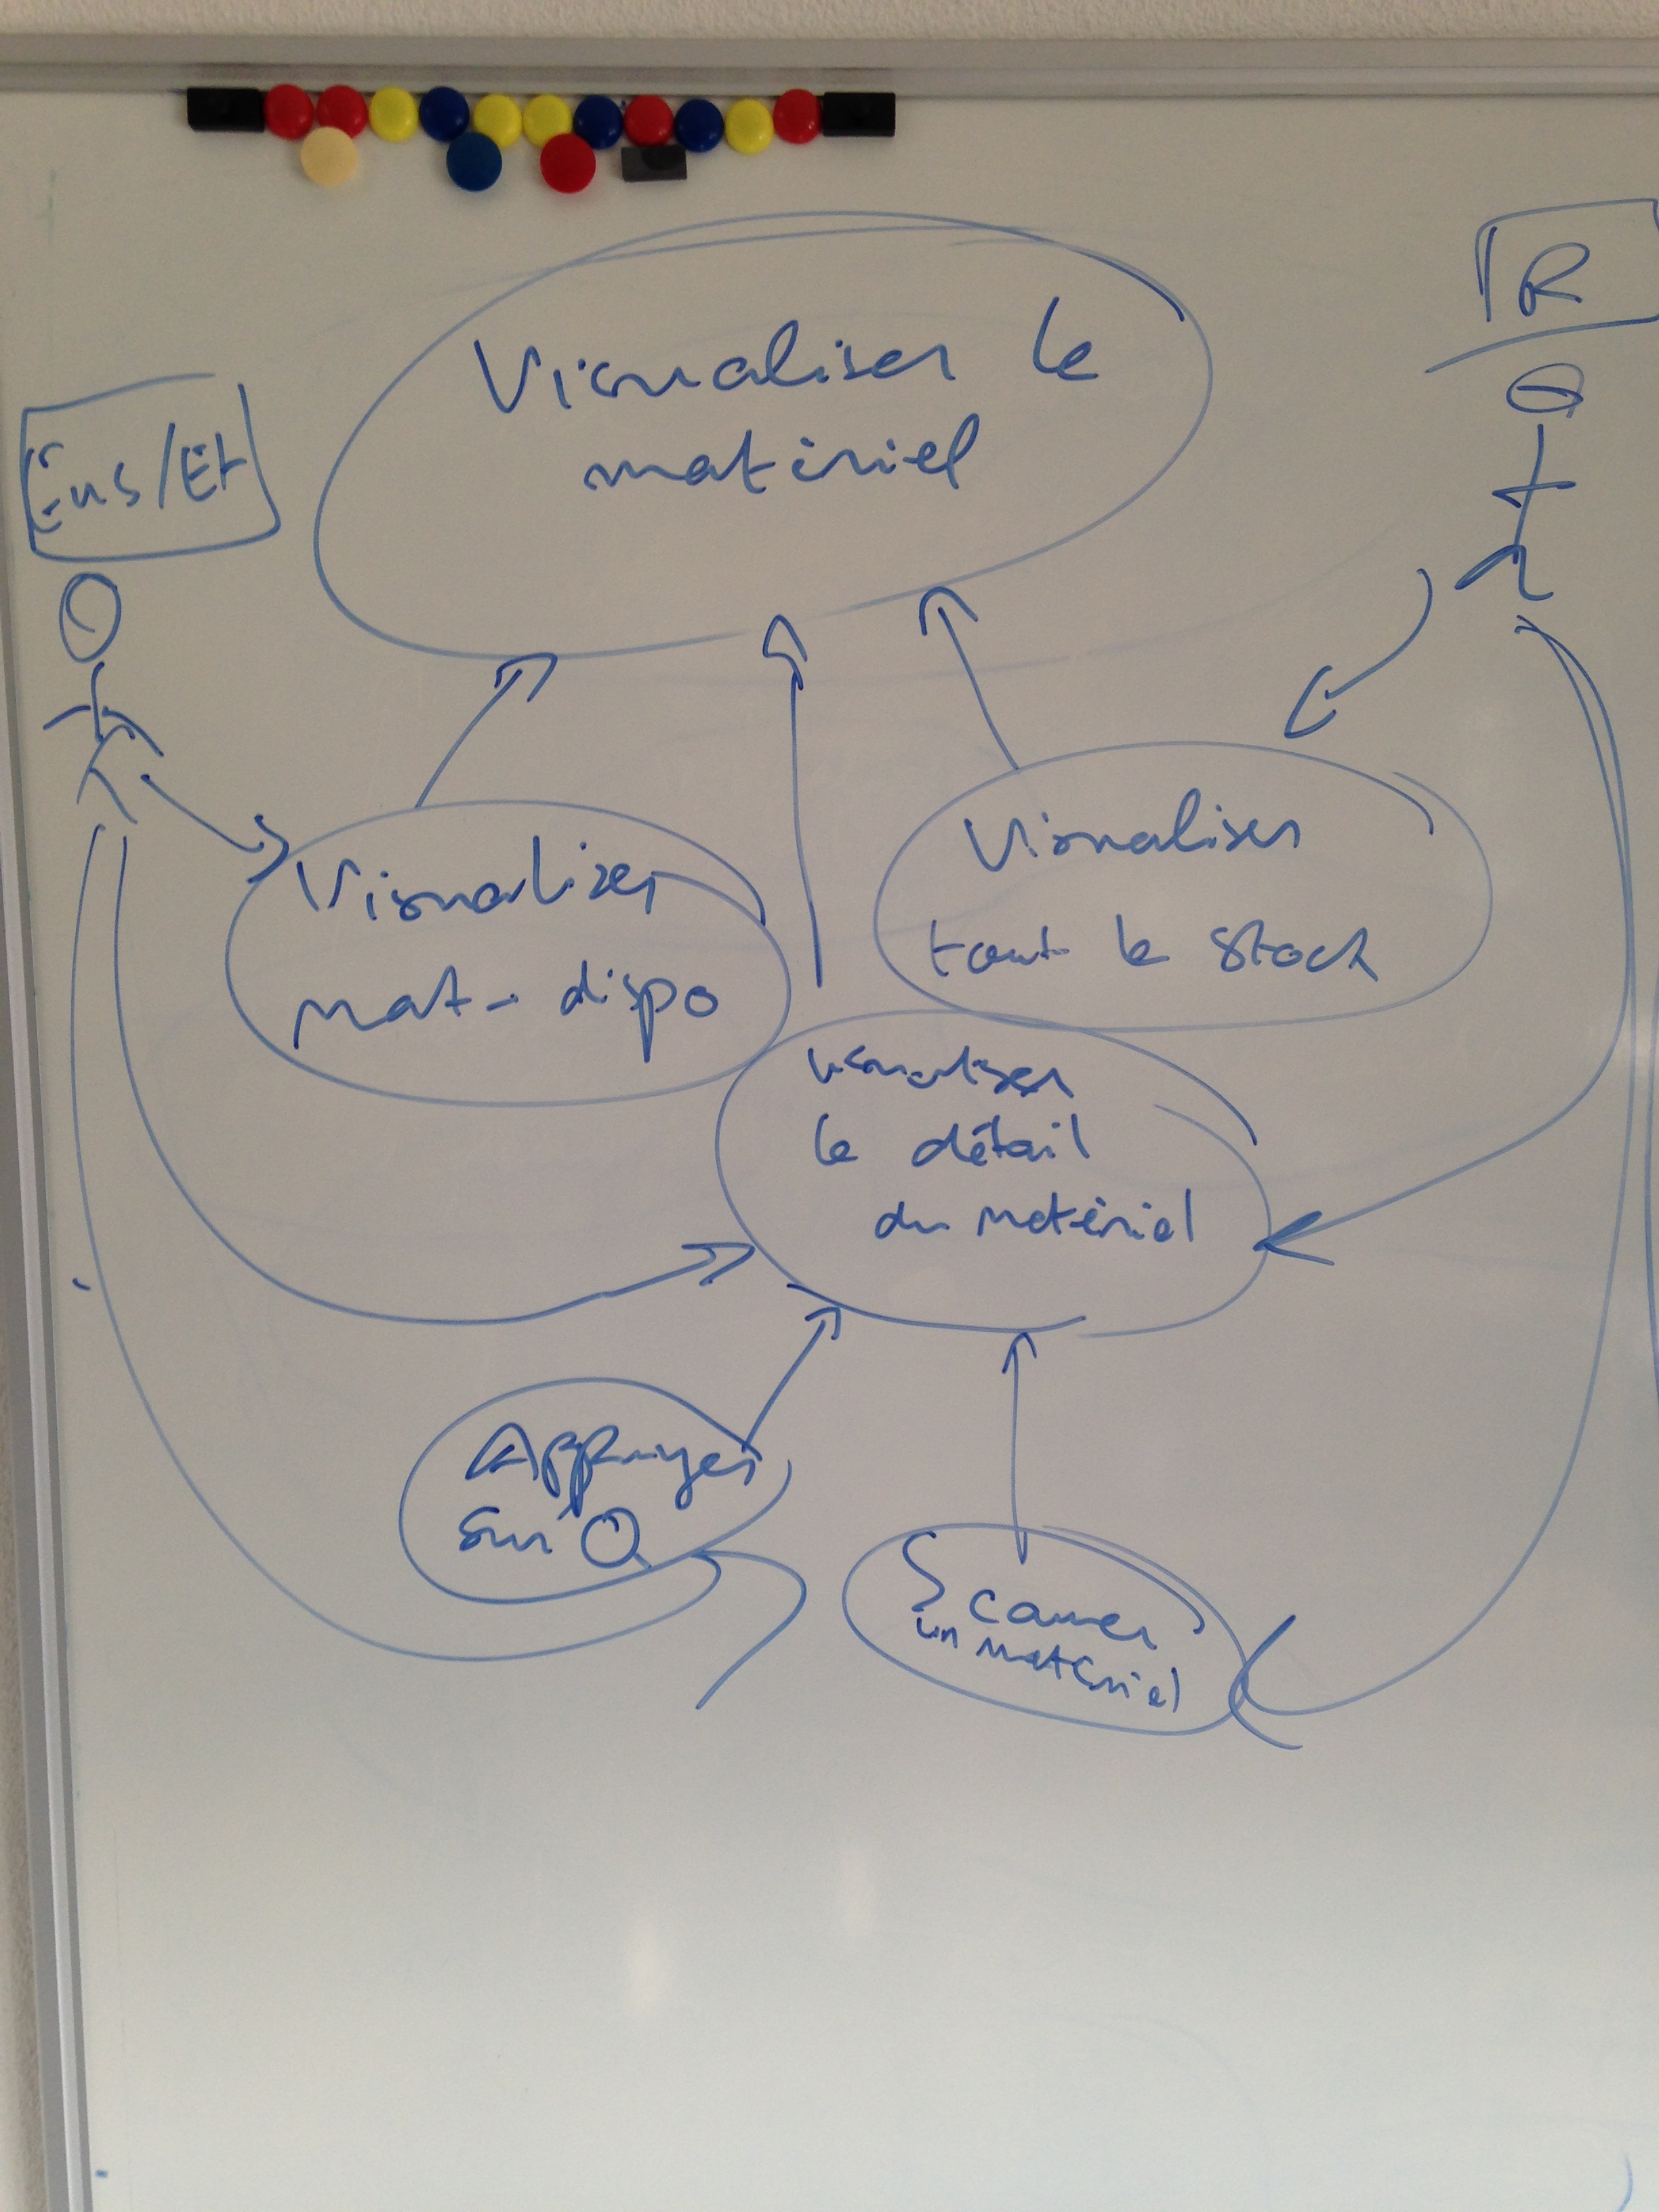 Visualiser le
matériel
IR
Ens/Et
Visualiser
mat. dispo
Visualiser
tout le stock
Visualiser
le détail
du matériel
Appuyer
sur
Scanner
un matériel